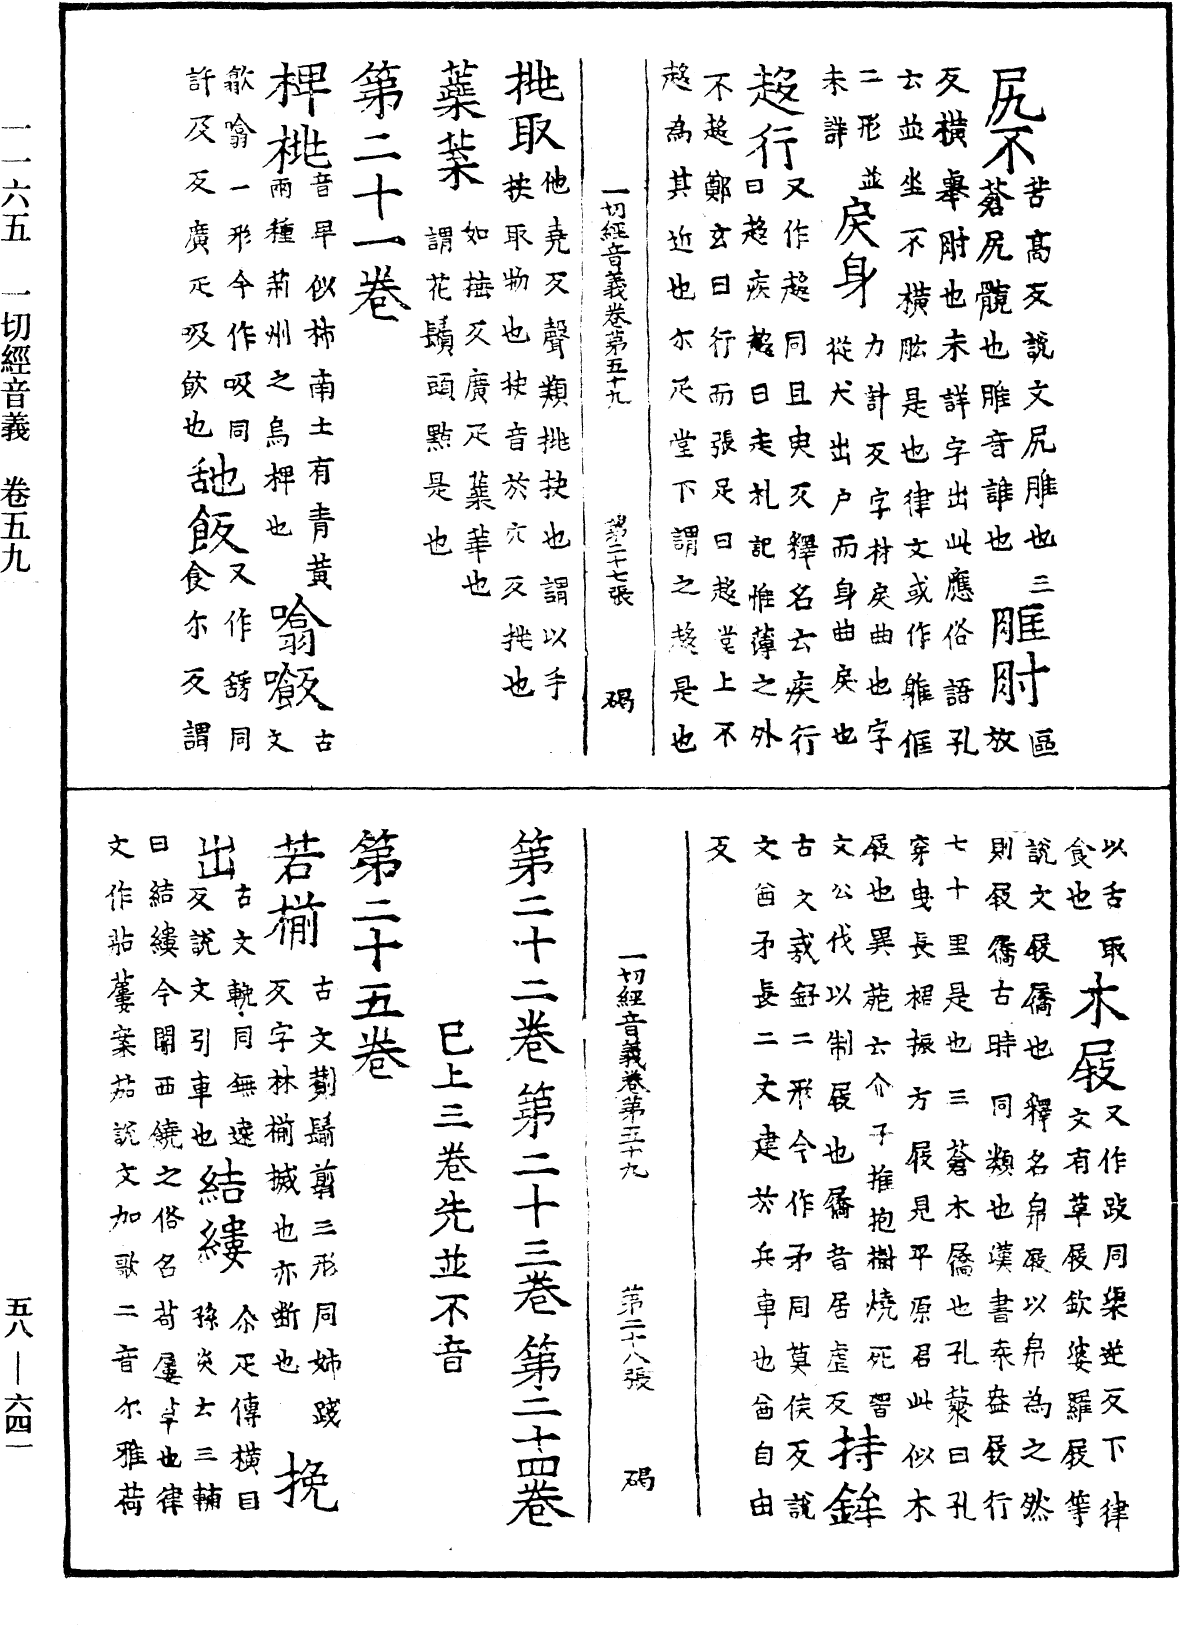 尻不苦高反說文尻脽也三
蒼尻髖也脽音誰也𦙶肘區放
反橫舉肘也未詳字出此應俗語孔
云並坐不橫肱是也律文或作軭偔
二形並
未詳戾身力計反字林戾曲也字
從犬出户而身曲戾也
趍行又作趍同且臾反釋名云疾行
曰趍疾趍曰走札記惟薄之外
不趍鄭玄曰行而張足曰趍堂上不
趍為其近也尒疋堂下謂之趍是也
一切經音義卷第五十九 第二十七張 碣
挑取他堯反聲類挑抉也謂以手
抉取物也抉音於穴反挑也
蘂葉如捶反廣疋蘂華也
謂花鬚頭點是也
第二十一卷
椑桃音卑似柿南土有青黃
兩種荊州之烏椑也噏飯古文
歙噏一形今作吸同
許及反廣疋吸飲也䑛飯又作䑛同
食尒反謂
以舌取
食也木屐又作跂同渠逆反下律
文有草屐欽婆羅屐等
說文屐屩也釋名帛屐以帛為之然
則屐屩古時同類也漢書袁盎屐行
七十里是也三蒼木屩也孔叢曰孔
穿曳長裾振方屐見平原君此似木
屐也異苑云介子推抱樹燒死晉
文公伐以制屐也屩音居虐反持鉾
古文𢦧釨二形今作矛同莫侯反說
文酋矛長二丈建於兵車也酋自由
反
一切經音義卷第五十九 第二十八張 碣
第二十二卷第二十三卷第二十四卷
已上三卷先並不音
第二十五卷
若揃古文劗鬋翦三形同姉踐
反字林揃搣也亦断也挽
出古文輓同無遠
反說文引車也結縷尒疋傳橫目
孫炎云三輔
曰結縷今關西饒之俗名苟屢草也律
文作䒷蔞案茄說文加歌二音尒雅荷
一一六五 一切經音義 卷五九
五八—六四一